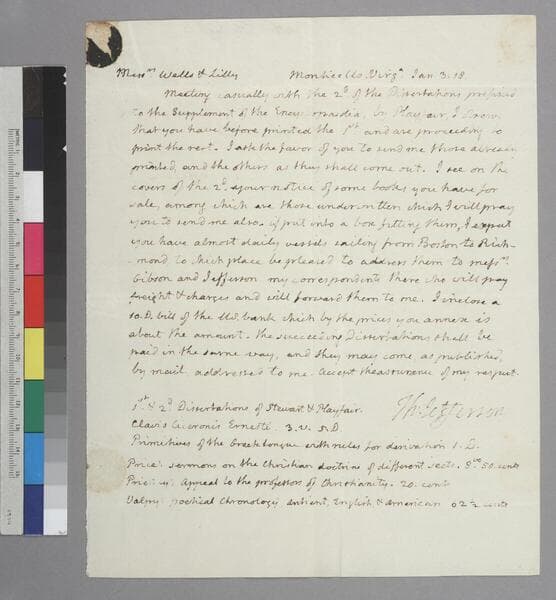 Mess.rs Wells & Lilly Monticello. Virga. Jan 3. 18.
Meeting casually with the 2d of the Dissertations prefixed
to the Supplement of the Encyclopaedia, by Playfair, I know
that you have before printed the 1st and are proceeding to
print the rest. I ask the favor of you to send me those already
printed, and the others as they shall come out. I see on the
covers of the 2d your notice of some books you have for
sale, among which are those underwritten which I will pray
you to send me also. if put into a box fitting them, I expect
you have almost daily vessels sailing from Boston to Rich-
mond to which place be pleased to address them to messrs
Gibson and Jefferson my correspondents there who will pay
freight & charges and will forward them to me. I inclose a
10. D. bill of the US. bank which by the prices you annex is
about the amount. the succeeding Dissertations shall be
paid in the same way, and they may come as published,
by mail addressed to me. Accept the assurance of my respect.
Th: Jefferson
1st & 2d Dissertations of Stewart & Playfair.
Clavis Ciceronis Ernesti 3. v. 5. D
Primitives of the Greek tongue with rules for derivation 1. D.
sermons on the Christian doctrine of different sects. 8vo 50. cents
Appeal to the professors of Christianity. 20. cent
Valpy's poetical Chronology antient, English, & American 62 ½ cents